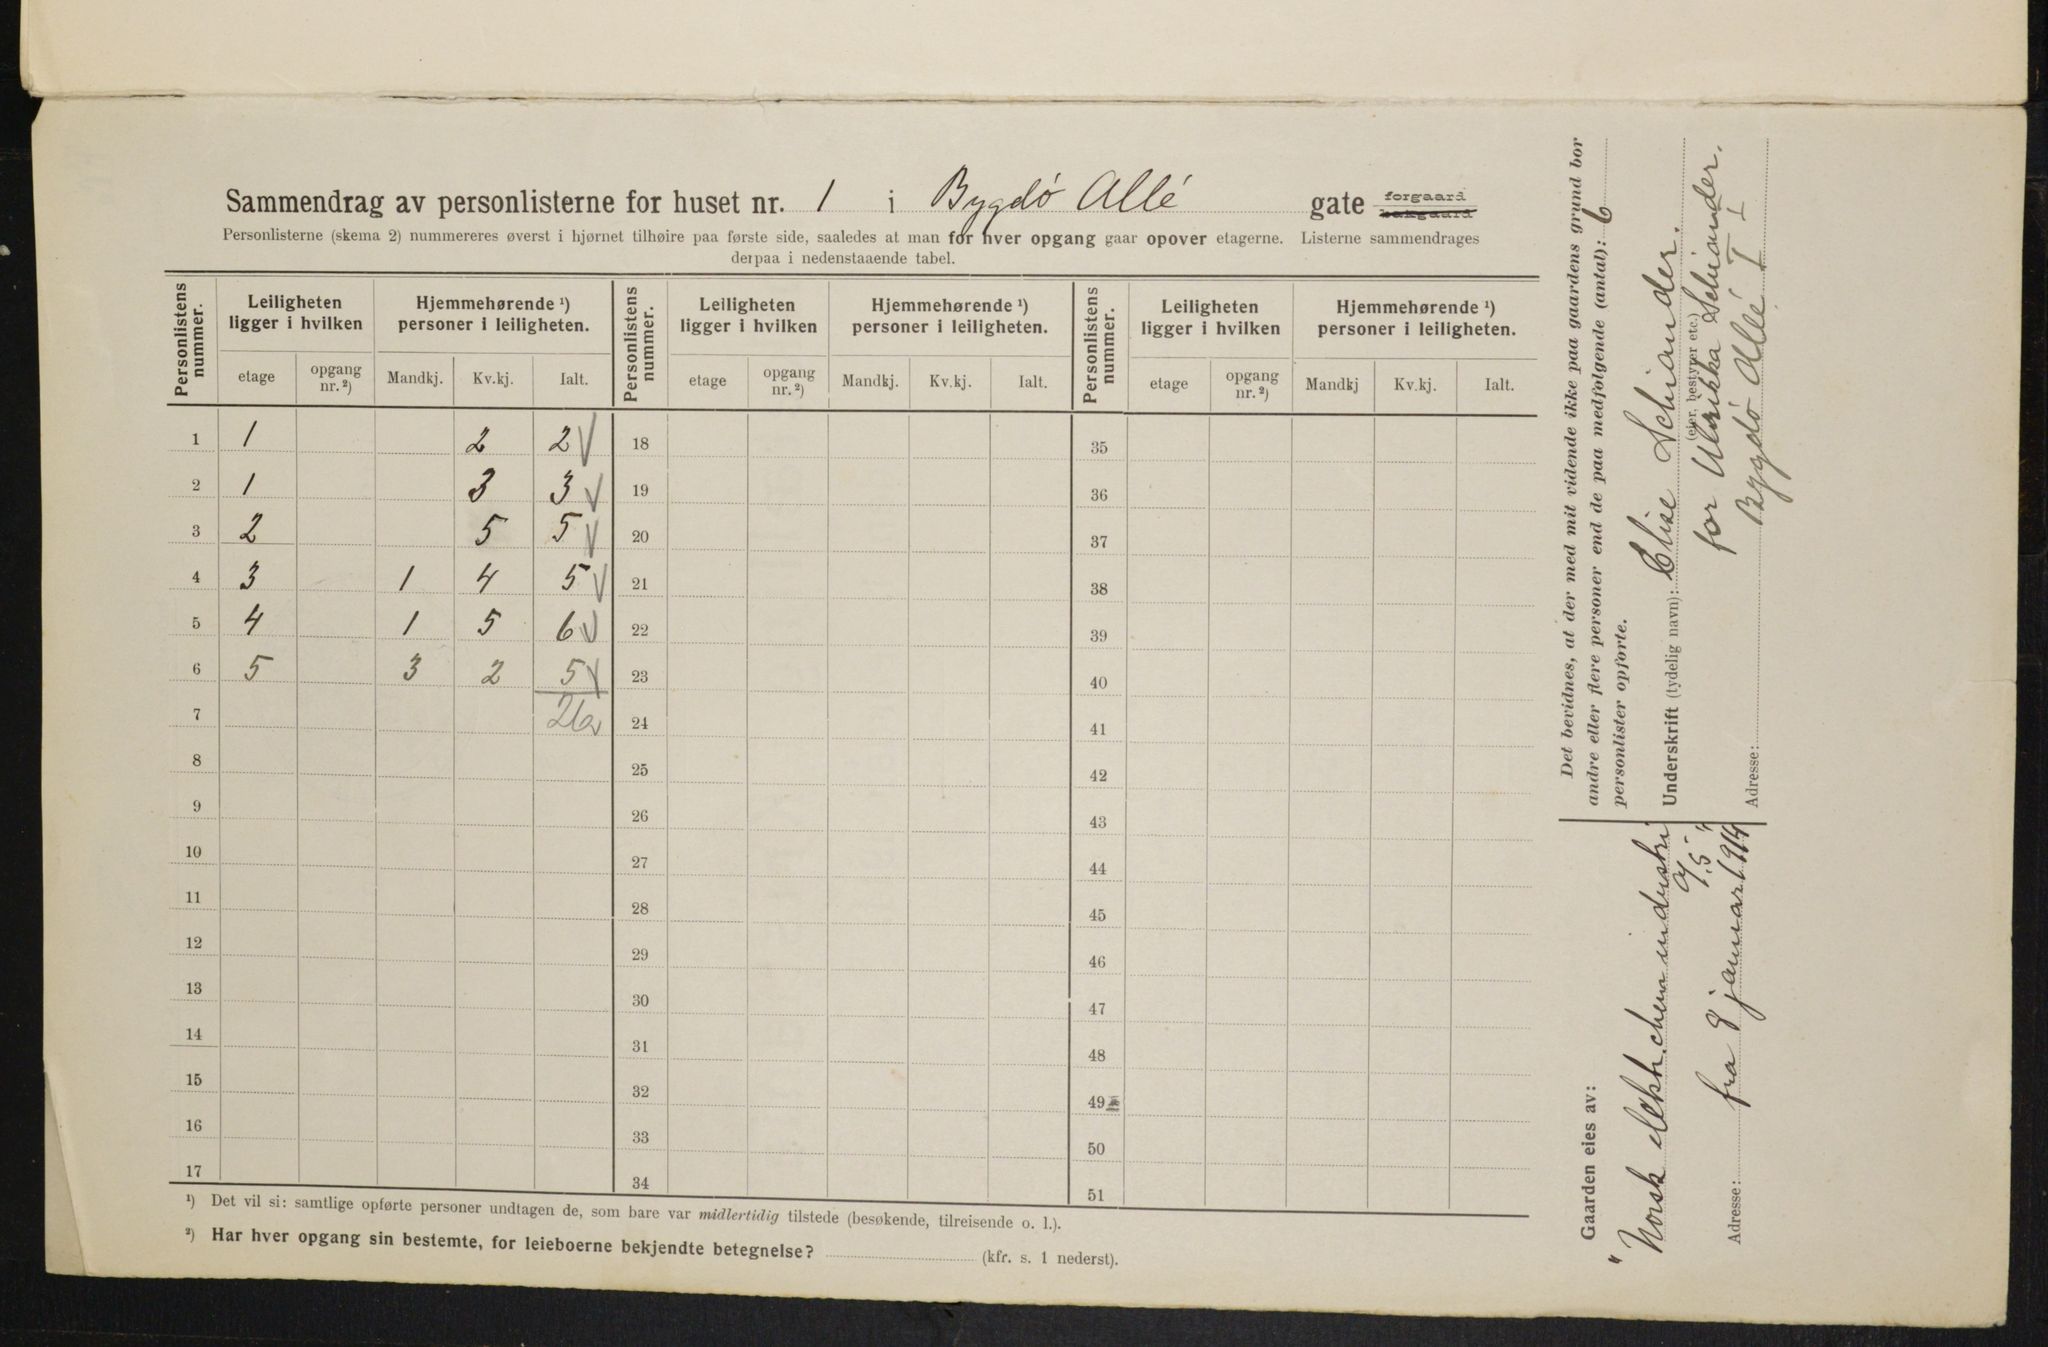 Sammendrag av personlisterne for huset nr. 1 i Bygdö Allé gate forgaard bakgaard
Personlisterne (skema 2) nummereres øverst i hjørnet tilhøire paa første side, saaledes at man for hver opgang gaar opover etagerne. Listerne sammendrages
derpaa i nedenstaaende tabel.
Personlistens nummer. Leiligheten ligger i hvilken Hjemmehørende ¹) personer i leiligheten. Personlistens nummer. Leiligheten ligger i hvilken Hjemmehørende ¹) personer i leiligheten. Personlistens nummer. Leiligheten ligger i hvilken Hjemmehørende ¹) personer i leiligheten.
etage opgang nr. ²) Mandkj. Kv.kj. Ialt. etage opgang nr. ²) Mandkj. Kv.kj. Ialt. etage opgang nr. ²) Mandkj Kv.kj. Ialt.
1 1 2 2 18 35
2 1 3 3 19 36
3 2 5 5 20 37
4 3 1 4 5 21 38
5 4 1 5 6 22 39
6 5 3 2 5 23 40
7 26 24 41
8 25 42
9 26 43
10 27 44
11 28 45
12 29 46
13 30 47
14 31 48
15 32 49
16 33 50
17 34 51
¹) Det vil si: samtlige opførte personer undtagen de, som bare var midlertidig tilstede (besøkende, tilreisende o. l.).
²) Har hver opgang sin bestemte, for leieboerne bekjendte betegnelse? (kfr. s. 1 nederst).
Det bevidnes, at der med mit vidende ikke paa gaardens grund bor
andre eller flere personer end de paa medfølgende (antal): 6
personlister opførte.
Underskrift (tydelig navn): Elise Schiander.
(eier, bestyrer etc.)
for Ulrikka Schiander.
Adresse: Bygdö Allé 1 I
Gaarden eies av:
"Norsk elektr. chem industri
A/S"
Adresse: fra 8 januar 1914